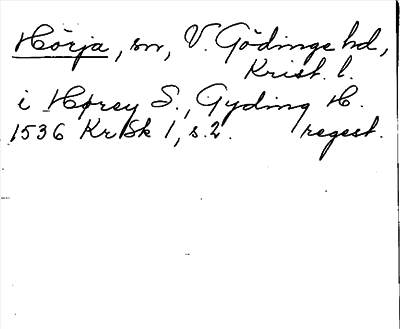 Hörja, sn, V. Gödinge hd,
Krist. l.
i Hørey S., Gyding H.
1536 KrSk 1, s. 2. regest.